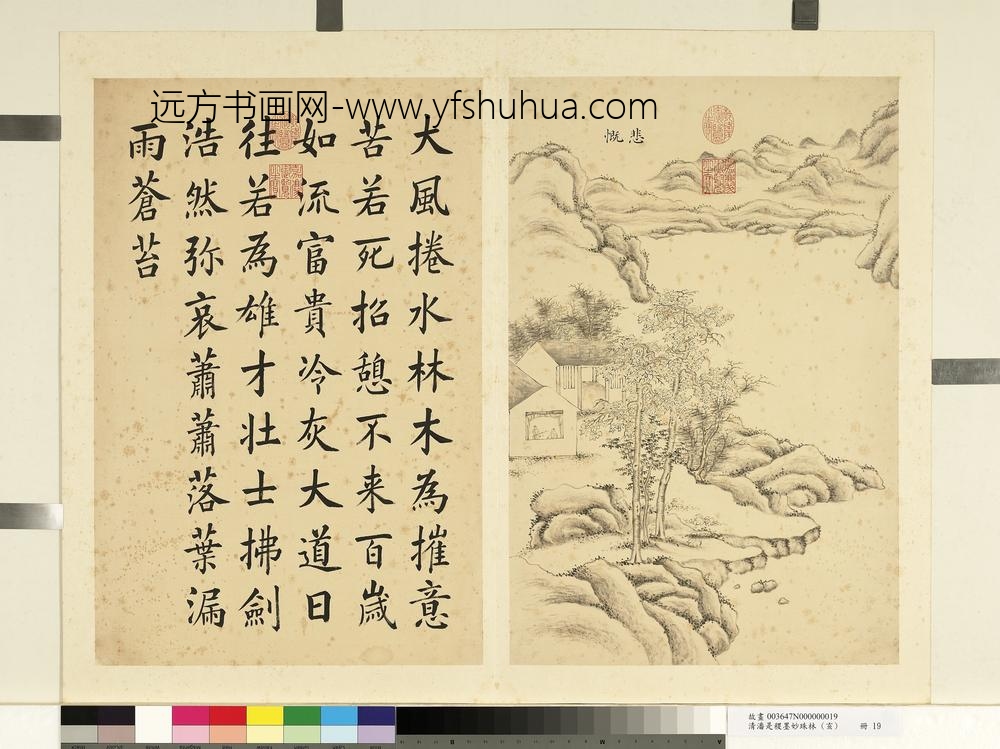 远方书画网-www.yfshuhua.com
悲慨
大風捲水林木為摧意
苦若死招憩不来百歲
如流富貴冷灰大道日
往若為雄才壯士拂劍
浩然弥哀蕭蕭落葉漏
雨蒼苔
故畫 003647N000000019
清潘是稷墨妙珠林（亥） 冊 19